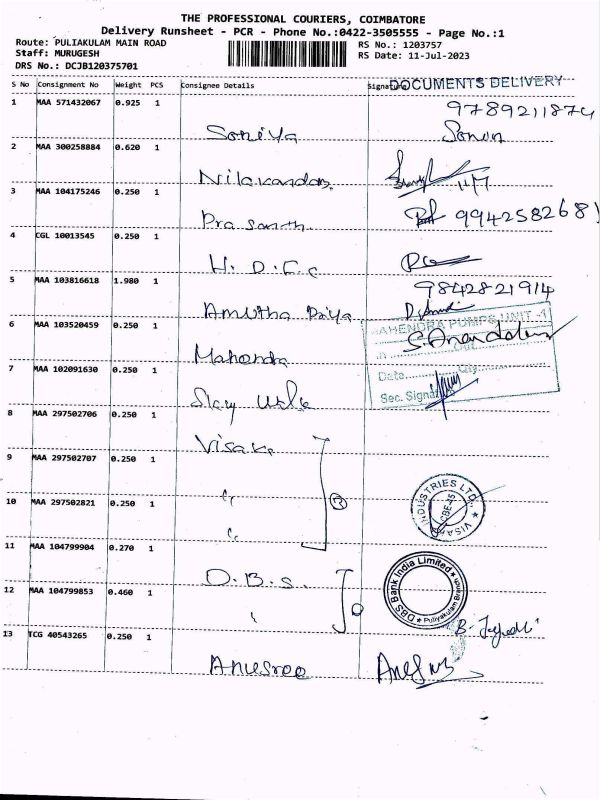 THE PROFESSIONAL COURIERS, COIMBATORE
Delivery Runsheet - PCR - Phone No.:0422-3505555 - Page No.:1
Route: PULIAKULAM MAIN ROAD
Staff: MURUGESH
DRS No.: DCJB120375701
RS No.: 1203757
RS Date: 11-Jul-2023
S No Consignment No Weight PCS Consignee Details Signature DOCUMENTS DELIVERY
1 MAA 571432067 0.925 1
9789211874
Soniya
2 MAA 300258884 0.620 1
Nilakandan
3 MAA 104175246 0.250 1
Prasanth 9942582681
4 CGL 10013545 0.250 1
H.D.F.C
5 MAA 103816618 1.980 1
9842821914
Amutha Priya
6 MAA 103520459 0.250 1
MAHENDRA PUMPS UNIT -1
Mahendra
7 MAA 102091630 0.250 1
Date
Sec. Signature
8 MAA 297502706 0.250 1
Visaka
9 MAA 297502707 0.250 1
"
③
10 MAA 297502821 0.250 1
"
INDUSTRIES LTD.
CBE-45
VISAKA
11 MAA 104799904 0.270 1
D.B.S.
DBS Bank India Limited
Puliyakulam Branch
12 MAA 104799853 0.460 1
"
13 TCG 40543265 0.250 1
Anusree